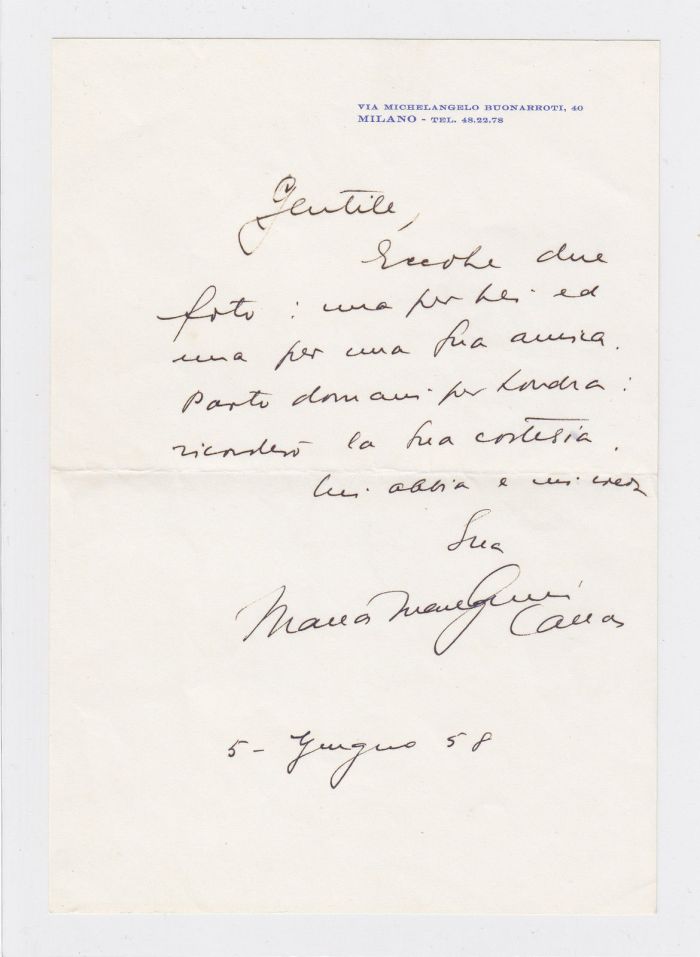 VIA MICHELANGELO BUONARROTI, 40
MILANO - TEL. 48.22.78
Gentile,
Eccole due
foto : una per Lei ed
una per una Sua amica.
Parto domani per Londra :
ricorderò la Sua cortesia.
Mi abbia e mi creda
Sua
Maria Meneghini
Callas
5 - Giugno 58